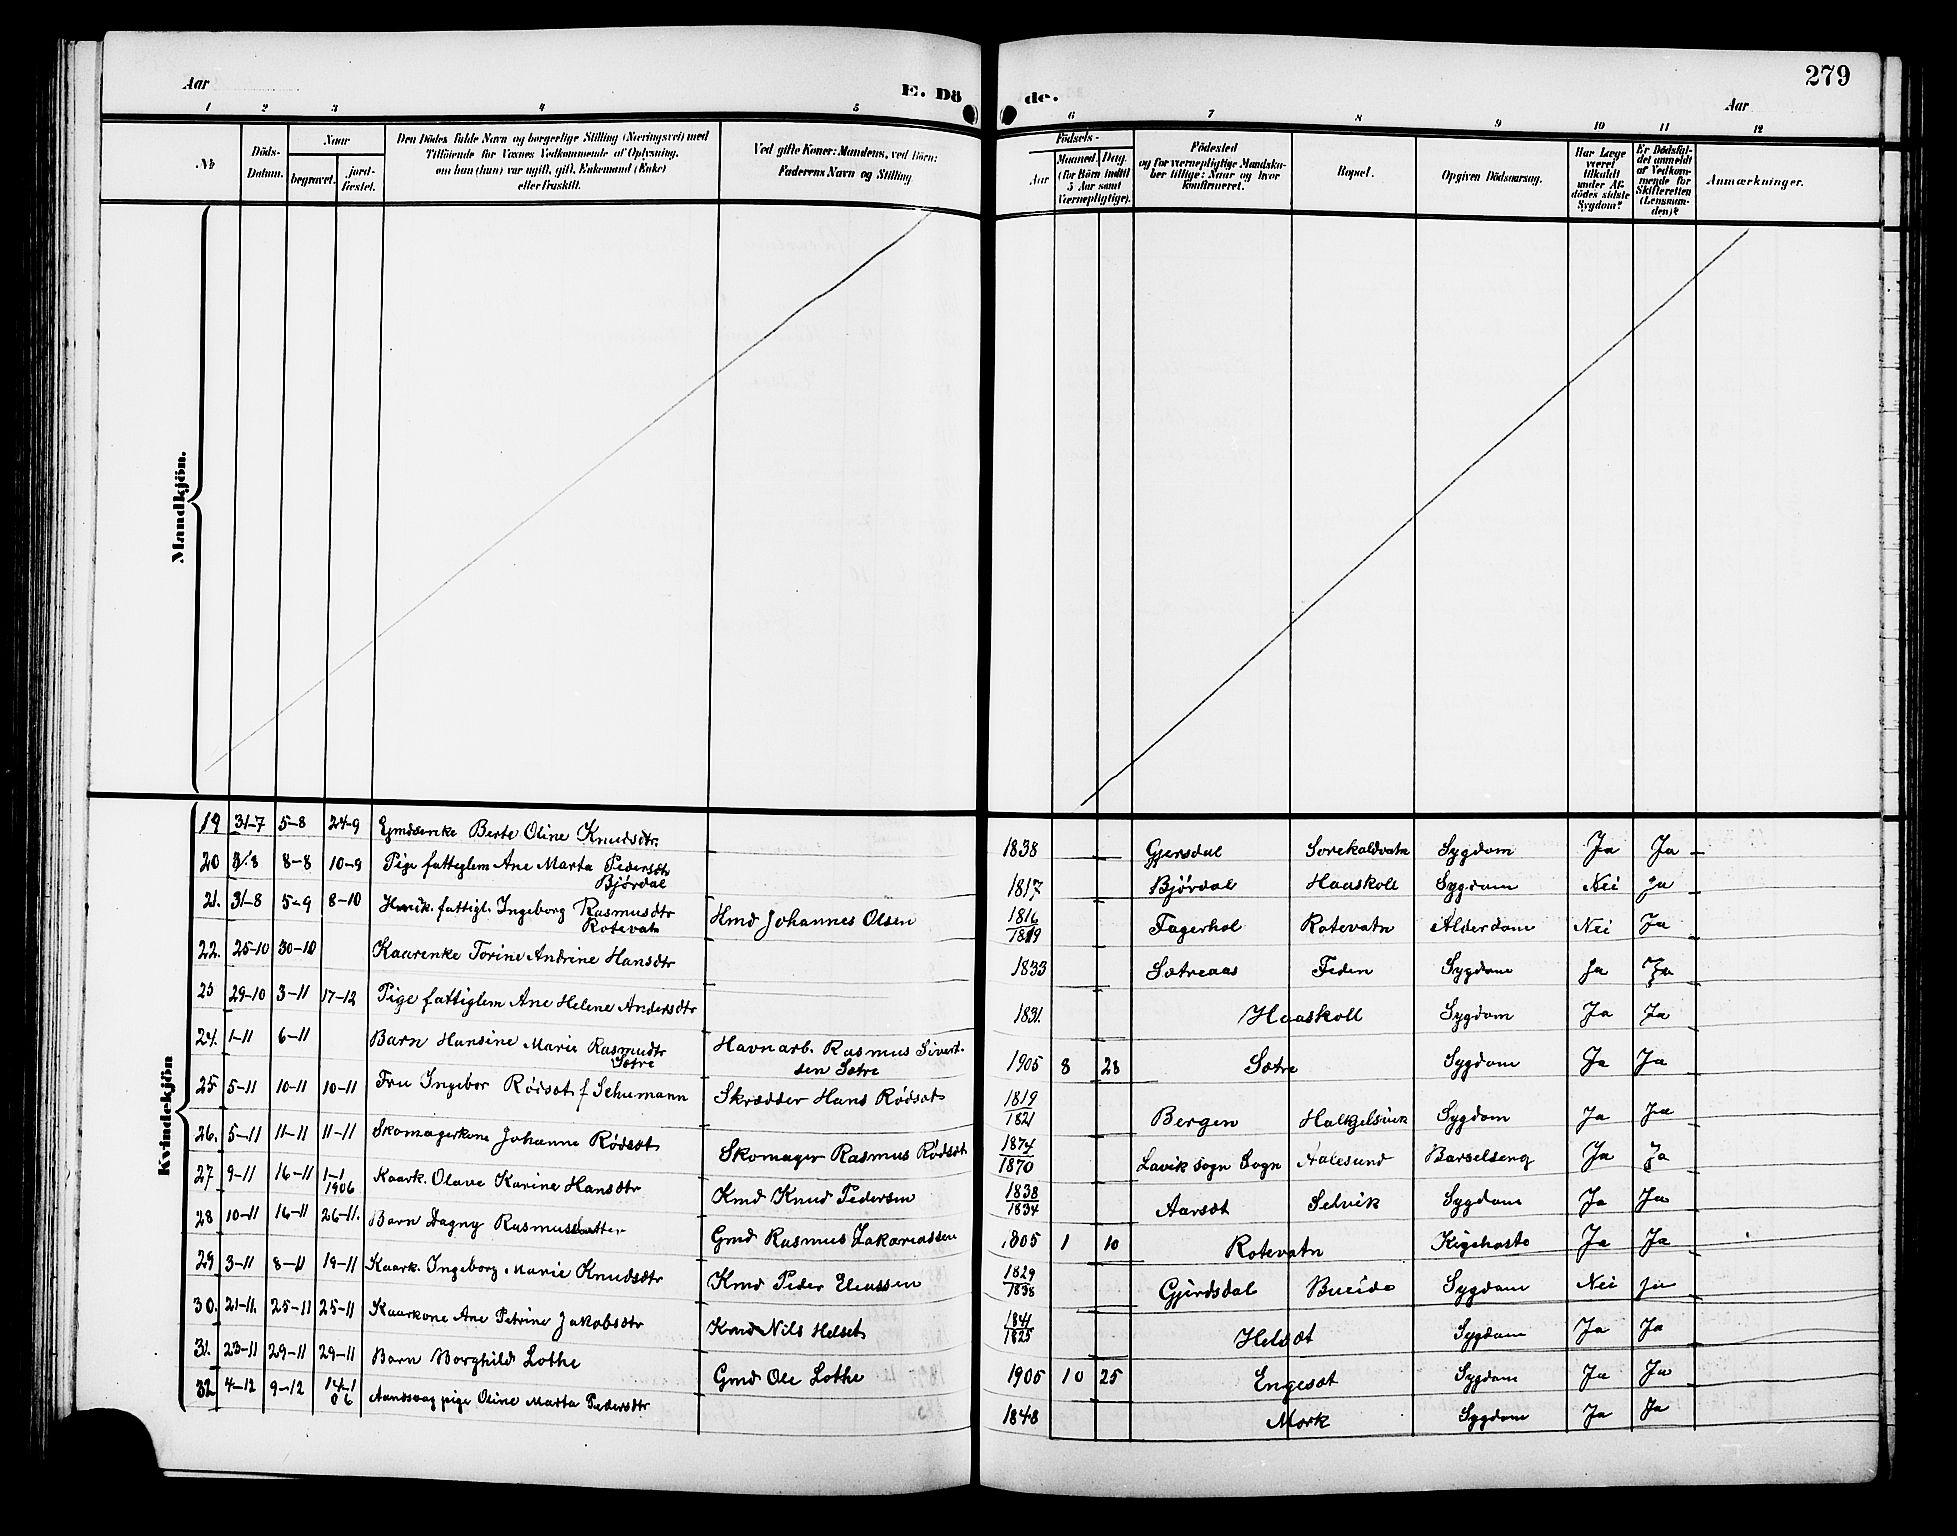 279
Aar
E. Dö
de.
Aar
1 2 3 4 5 6 7 8 9 10 11 12
No
Döds-
Datum.
Naar
begravet.
jord-
fæstet.
Den Dödes fulde Navn og borgerlige Stilling (Næringsvei) med
Tilföiende for Voxnes Vedkommende af Oplysning,
om han (hun) var ugift, gift, Enkemand (Enke)
eller fraskilt.
Ved gifte Koner: Mandens, ved Börn:
Faderens Navn og Stilling
Födsels-
Aar
Maaned. Dag.
(for Börn indtil
5 Aar samt
Værnepligtige).
Födested
og for værnepligtige Mandska-
ber tillige: Naar og hvor
konfirmeret.
Bopæl.
Opgiven Dödsaarsag.
Har Læge
været
tilkaldt
under Af-
dödes sidste
Sygdom?
Er Dödsfal-
det anmeldt
af Vedkom-
mende for
Skifteretten
(Lensman-
den)?
Anmærkninger.
Mandkjön.
Kvindekjön
19 31-7 5-8 24-9 Gmdsenke Berte Oline Knudsdtr. 1838 Gjersdal Sorekaldvatn Sygdom Ja Ja
20 3/8 8-8 10-9 Pige fattiglem Ane Marta Pedersdtr
Bjørdal 1817 Bjørdal Haaskoll Sygdom Nei Ja
21. 31-8 5-9 8-10 fattigl. Ingeborg Rasmusdtr
Rotevatn Hmd Johannes Olsen 1816
1819 Fagerhol Rotevatn Alderdom Nei Ja
22. 25-10 30-10 Kaarenke Torine Andrine Hansdtr 1833 Sætreaas Feden Sygdom Ja Ja
23 29-10 3-11 17-12 Pige fattiglem Ane Helene Andersdtr 1831. Haaskoll Sygdom Ja Ja
24. 1-11 6-11 Barn Hansine Marie Rasmusdtr
Sætre Havnarb. Rasmus Sivert-
sen Sætre 1905 8 28 Sætre Sygdom Ja Ja
25 5-11 10-11 10-11 Fru Ingebor Rødsæt f Schumann Skrædder Hans Rødsæt 1819
1821 Bergen Halkjelsvik Sygdom Ja Ja
26. 5-11 11-11 11-11 Skomagerkone Johanne Rødsæt Skomager Rasmus Rødsæt 1874
1870 Lavik sogn Sogn Aalesund Barselseng Ja Ja
27 9-11 16-11 1-1
1906 Kaark. Olave Karine Hansdtr Kmd Knud Pedersen 1838
1834 Aarsæt Selvik Sygdom Ja Ja
28 10-11 16-11 26-11. Barn Dagny Rasmusdatter Gmd Rasmus Zakariassen 1805 1 10 Rotevatn Kighoste Ja Ja
29 3-11 8-11 19-11 Kaark. Ingeborg Marie Knudsdtr Kmd Peder Eliassen 1829
1838 Gjerdsdal Bueide Sygdom Nei Ja
30. 21-11. 25-11 25-11 Kaarkone Ane Petrine Jakobsdtr Kmd Nils Helset 1841
1825 Helsæt Sygdom Ja Ja
31. 23-11 29-11 29-11 Barn Borghild Lothe Gmd Ole Lothe 1905 10 25 Engesæt Sygdom Ja Ja
32 4-12 9-12 14-1
06 Aandssvag pige Oline Marta Pedersdtr 1848 Mork Sygdom Ja Ja